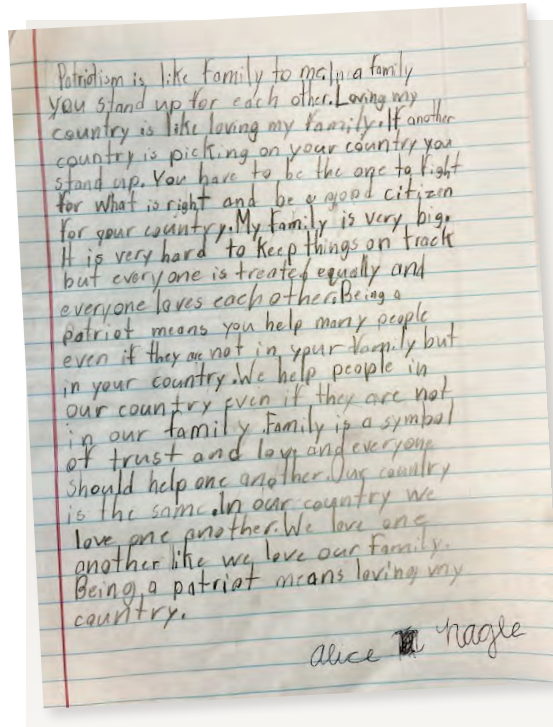 Patriotism is like family to me. In a family
you stand up for each other. Loving my
country is like loving my family. If another
country is picking on your country you
stand up. You have to be the one to fight
for what is right and be a good citizen
for your country. My family is very big.
It is very hard to keep things on track
but everyone is treated equally and
everyone loves each other. Being a
patriot means you help many people
even if they are not in your family but
in your country. We help people in
our country even if they are not
in our family. Family is a symbol
of trust and love and everyone
should help one another. Our country
is the same. In our country we
love one another. We love one
another like we love our family.
Being a patriot means loving my
country.
alice nagle